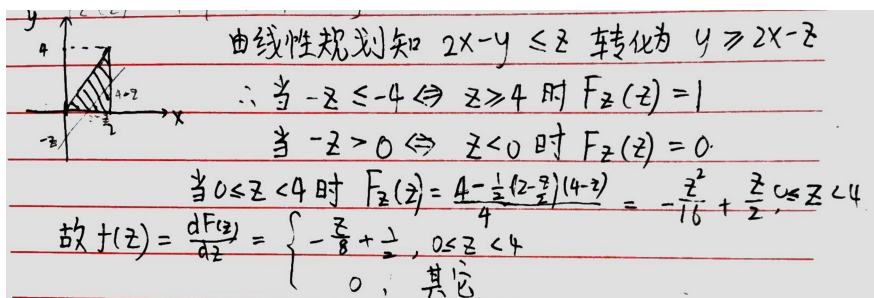 y
4
4-z
x
z/2
-z
由线性规划知 2x-y ≤ z 转化为 y ≥ 2x-z
∴ 当 -z ≤ -4 ⇔ z ≥ 4 时 F_Z(z) = 1
当 -z > 0 ⇔ z < 0 时 F_Z(z) = 0.
当 0 ≤ z < 4 时 F_Z(z) = (4 - 1/2(2 - z/2)(4-z))/4 = -z²/16 + z/2, 0 ≤ z < 4
故 f(z) = dF(z)/dz = { -z/8 + 1/2, 0 ≤ z < 4
0, 其它